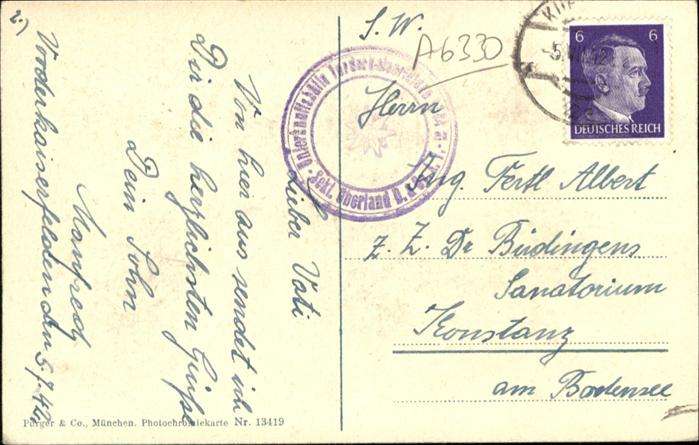 2.)
Vorderkaiserfelden den 5.7.42.
Lieber Vati
Von hier aus sendet ich
Dir die herzlichsten Grüße
Dein Sohn
Manfred
Fürger & Co., München. Photochromiekarte Nr. 13419
S. W.
A6330
Herrn
Ing. Fertl Albert
z. Z. Dr Büdingens
Sanatorium
Konstanz
am Bodensee
Unterkunftshütte
Sekt. Oberland D.
6 6
DEUTSCHES REICH